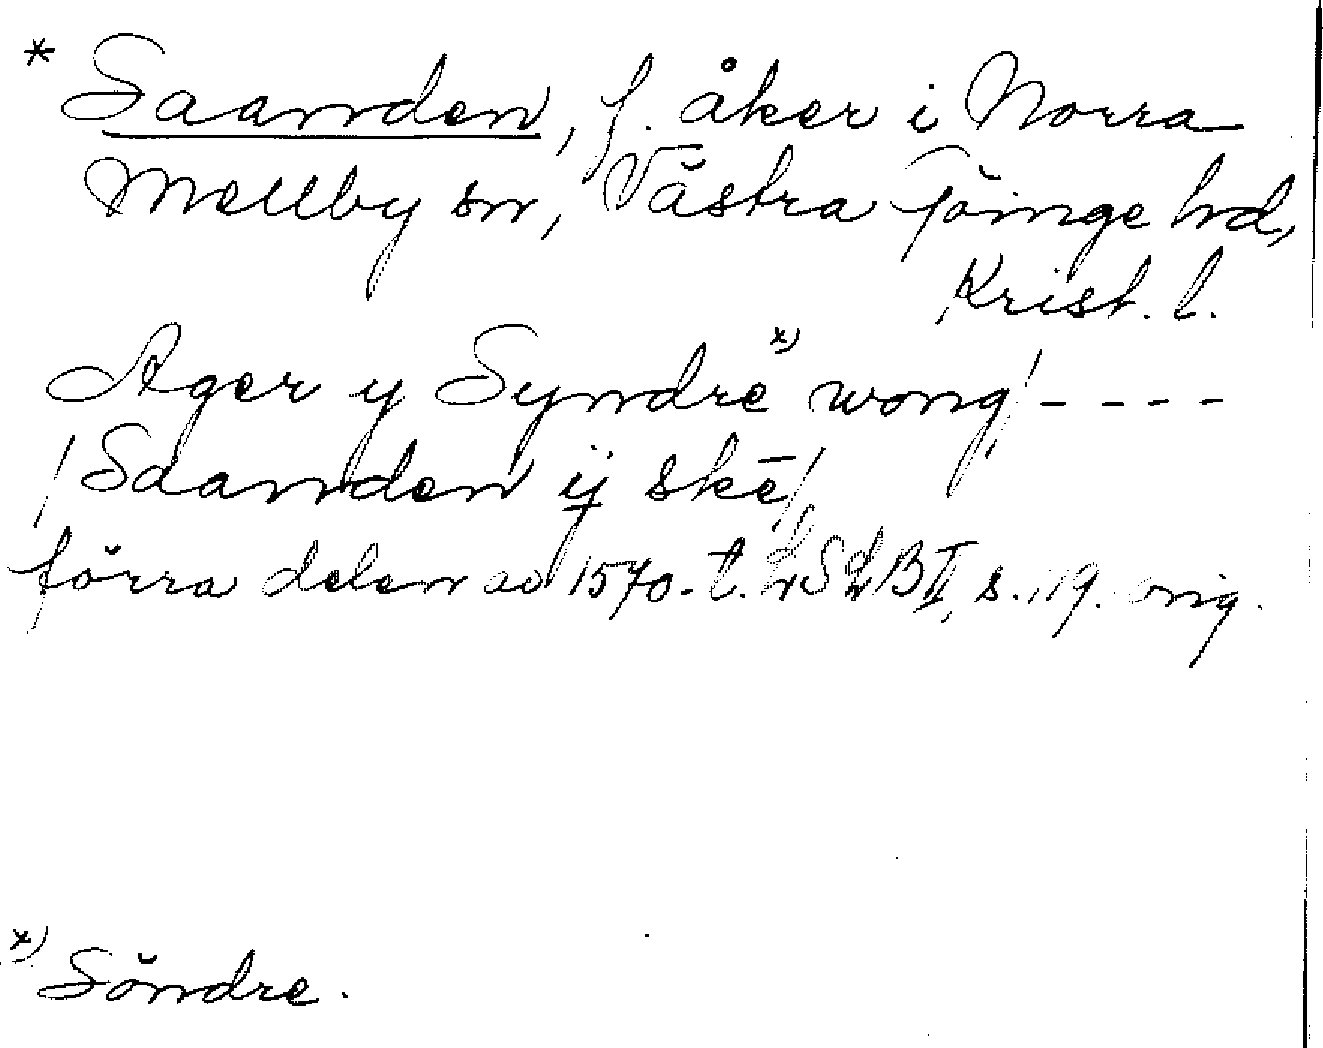 * Saanden, f. åker i Norra
Mellby sn, Västra Göinge hd,
Krist. l.
Ager y Syndrē x) wong/ - - - -
/Saanden ÿ skē/
förra delen av 1570-t. LSJB II, s. 119. orig.
x) Söndre.